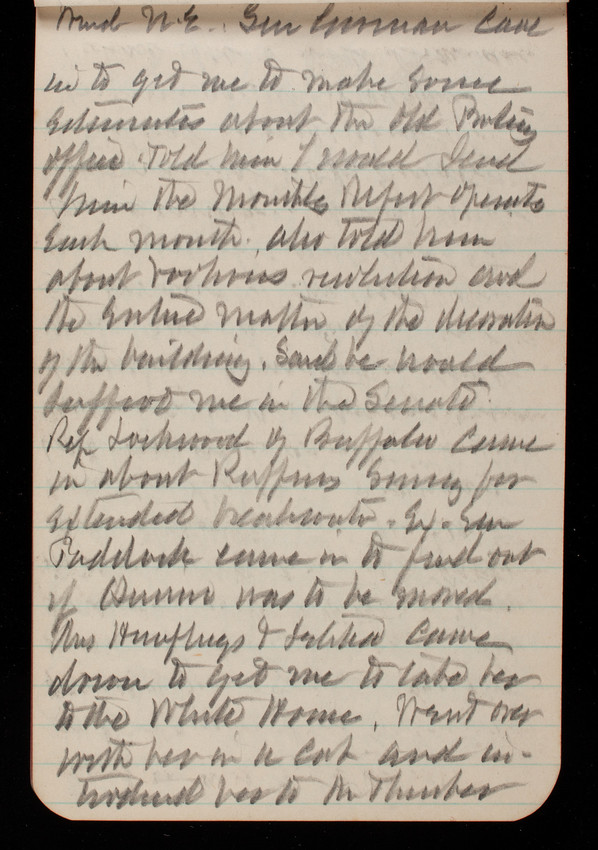 Wind N.E. Gen came
in to get me to make some
Estimates about the old Printing
office. Told him I would send
him the Monthly Report Operats
Each month. also told him
about resolution and
the Entire matter of the decoration
of the building. Said he would
support me in the Senate.
Rep Lockwood of Buffalo came
in about survey for
Extended breakwater. Ex. Sen
Paddock came in to find out
if was to be moved.
Mrs Humphreys & came
down to get me to take her
to the White House. Went over
with her in a cab and in-
troduced her to Mr Thurber